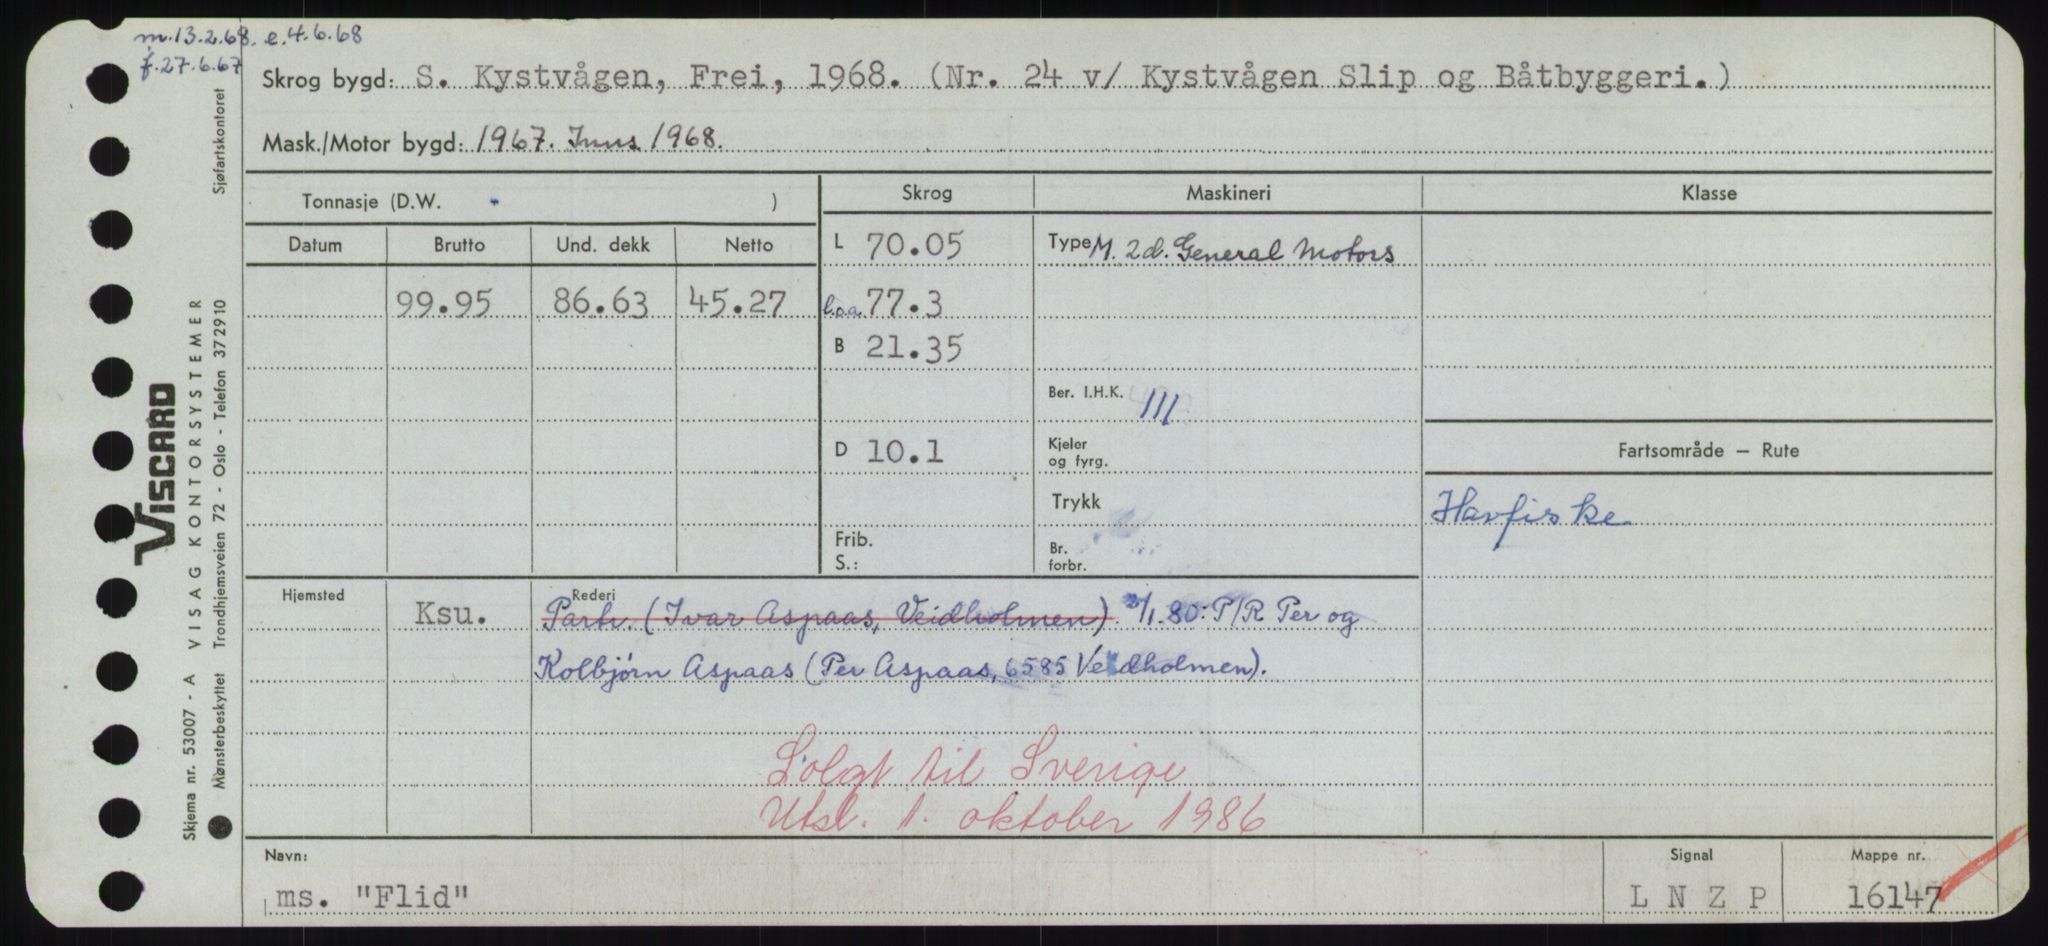 m. 13.2.68. e. 4.6.68
f. 27.6.67
Skrog bygd: S. Kystvågen, Frei, 1968. (Nr. 24 v/ Kystvågen Slip og Båtbyggeri.)
Mask./Motor bygd: 1967. Inns. 1968.
Tonnasje (D.W. )
Skrog
Maskineri
Klasse
Datum Brutto Und. dekk Netto
L 70.05
Type M. 2d. General Motors
99.95 86.63 45.27
l.o.a. 77.3
B 21.35
Ber. I.H.K. 111
D 10.1
Kjeler
og fyrg.
Fartsområde — Rute
Trykk
Havfiske
Frib.
S.:
Br.
forbr.
Hjemsted
Ksu.
Rederi
Partr. (Ivar Aspaas, Veidholmen). 2/1.80: P/R Per og
Kolbjørn Aspaas (Per Aspaas, 6585 Veidholmen).
Solgt til Sverige
Utsl. 1. oktober 1986
Navn:
ms. "Flid"
Signal
L N Z P
Mappe nr.
16147
Skjema nr. 53007 - A VISAG KONTORSYSTEMER
Mønsterbeskyttet Trondhjemsveien 72 - Oslo - Telefon 372910
Sjøfartskontoret
VISCARD